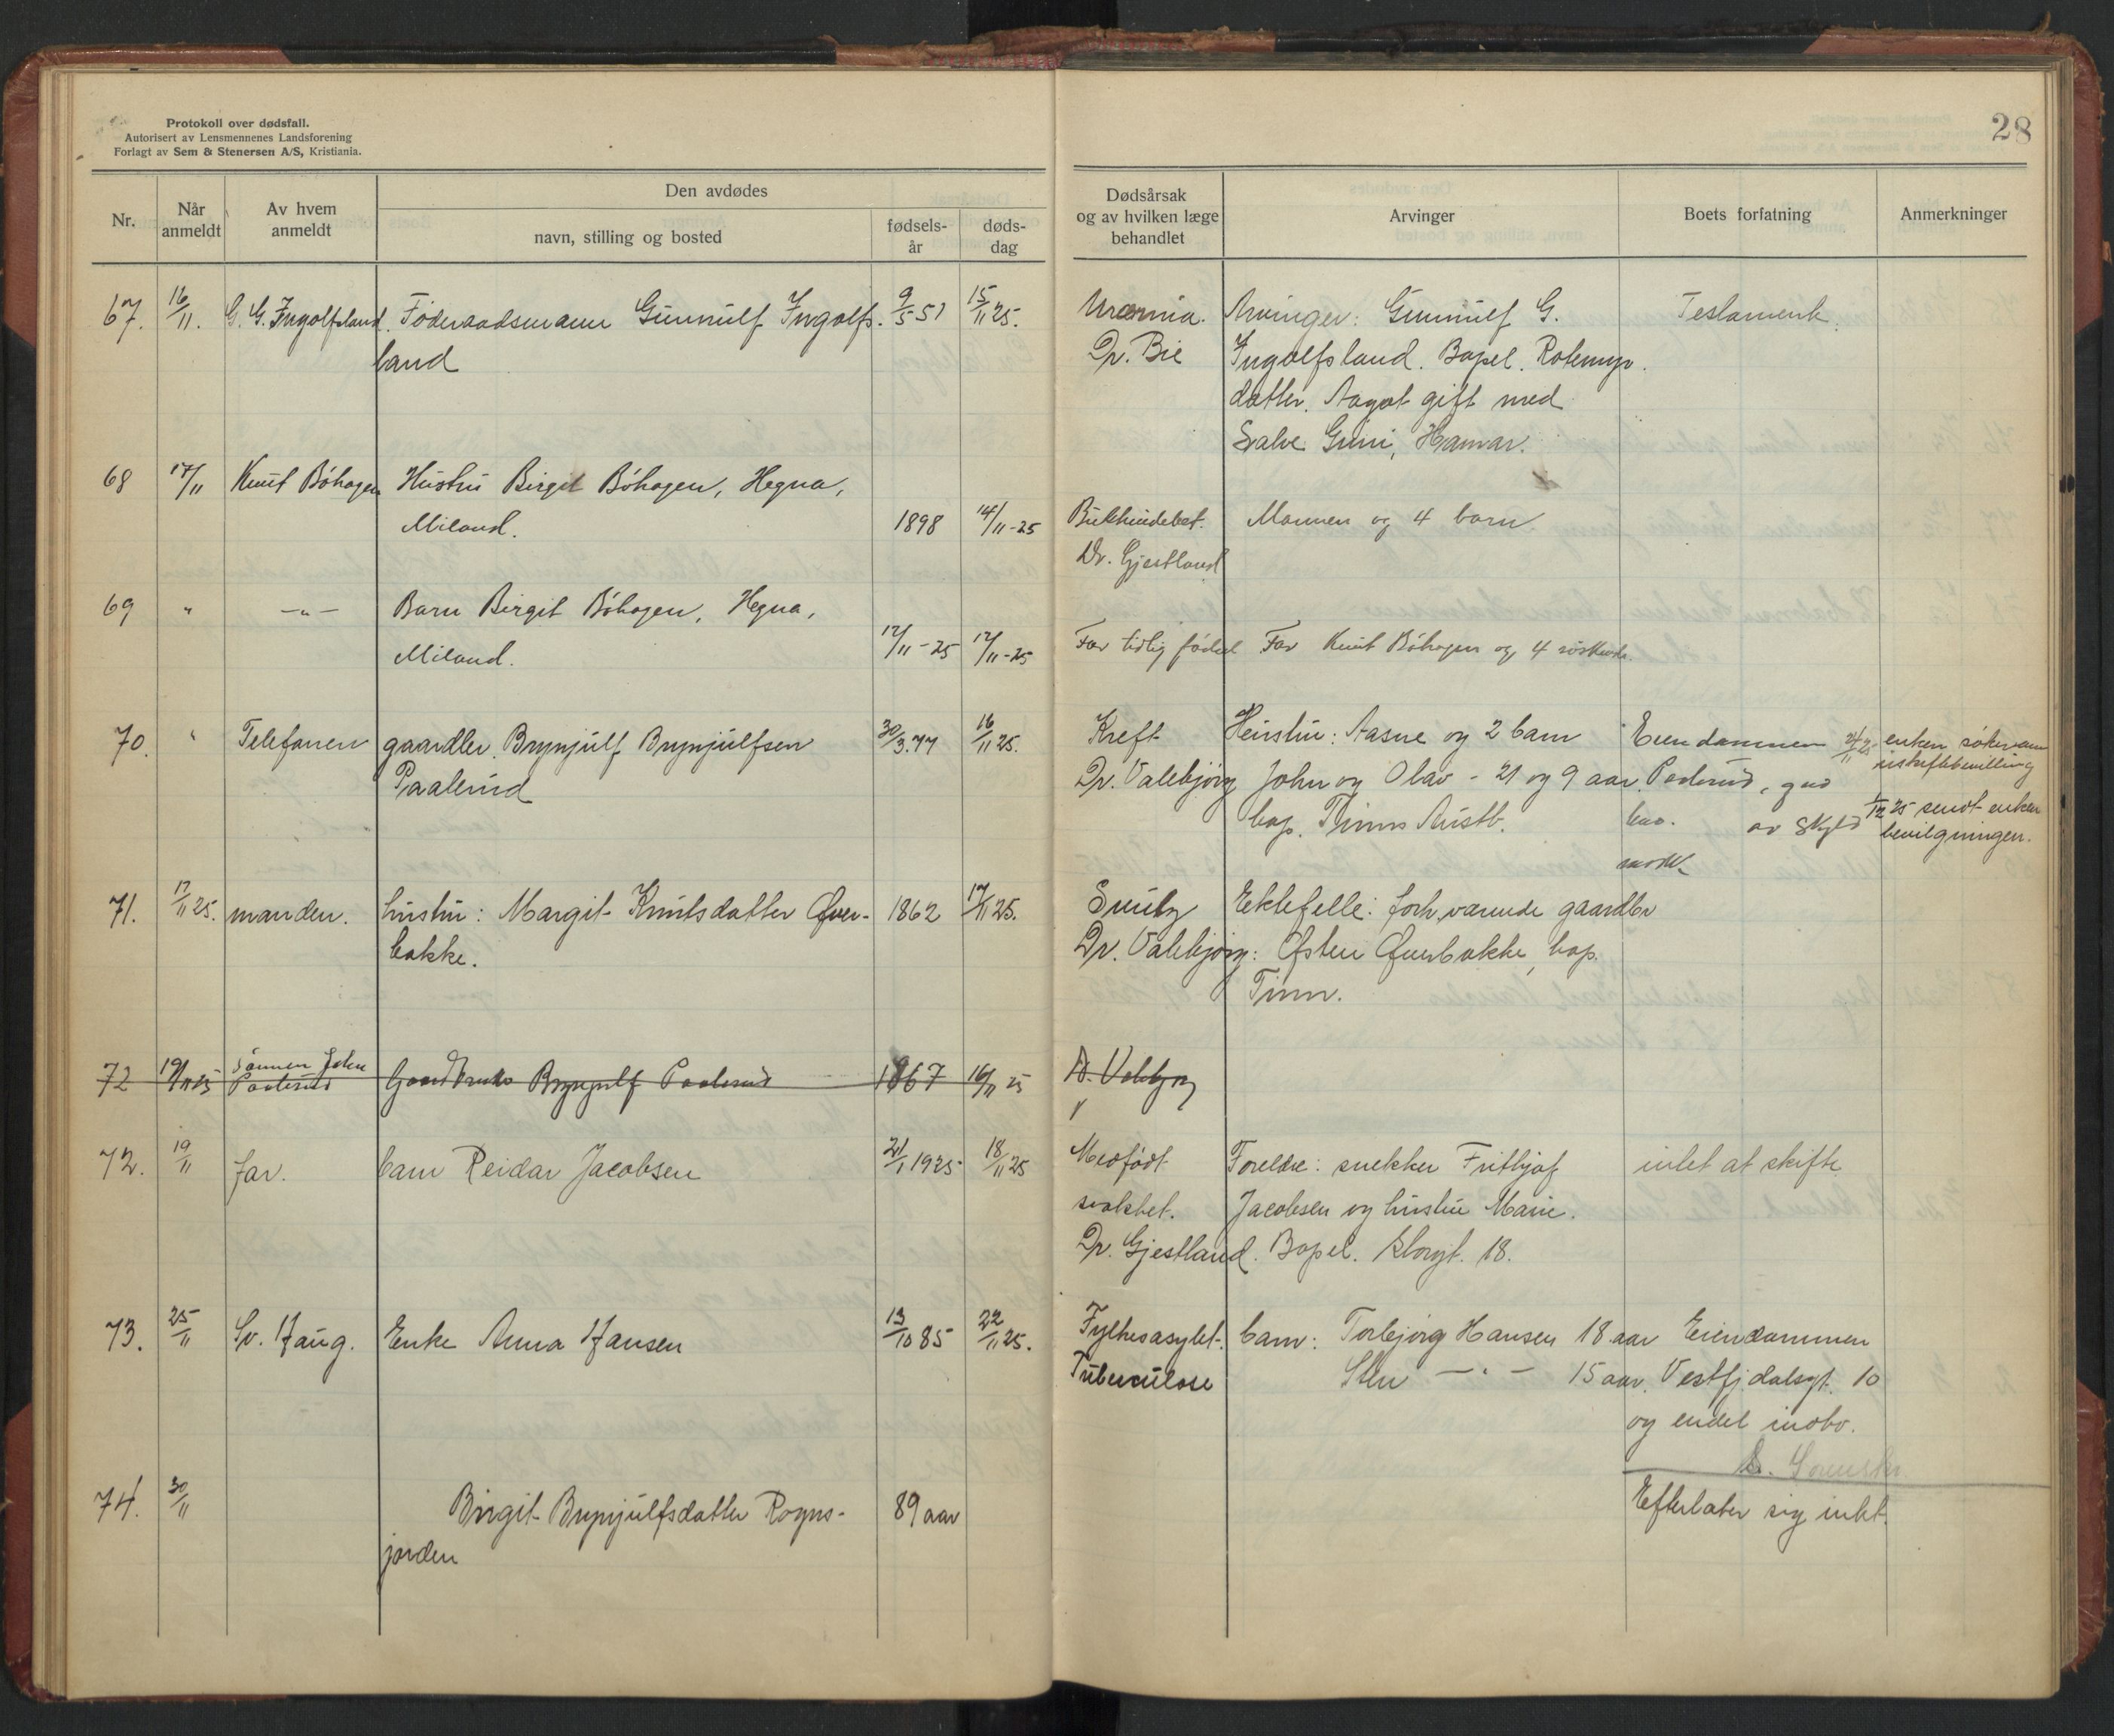 Protokoll over dødsfall.
Autorisert av Lensmennenes Landsforening
Forlagt av Sem & Stenersen A/S, Kristiania.
28
Nr.
Når anmeldt
Av hvem anmeldt
Den avdødes
navn, stilling og bosted
fødsels-år
døds-dag
Dødsårsak og av hvilken læge behandlet
Arvinger
Boets forfatning
Anmerkninger
67. 16/11. G. G. Ingolfsland. Föderaadsmann Gunnulf Ingolfs- 9/5 51 15/11 25. Uræmia. Arvinger: Gunnulf G. Testament.
land Dr. Bie Ingolfsland. Bopel. Rotemyr.
datter. Aagot gift med
Salve Grini, Hamar.
68 17/11 Knut Böhagen Hustru Birgit Böhagen, Hegna,
Miland. 1898 14/11-25 Bukhindebet. Mannen og 4 barn
Dr. Gjestland
69 " —"— Barn Birgit Böhagen, Hegna,
Miland. 12/11-25 12/11-25 For tidlig födsel Far Knut Böhagen og 4 söskende.
70. " Telefonen gaardbr. Brynjulf Brynjulfsen 30/3.77 16/11 25. Kreft Hustru: Aasne og 2 barn Eiendommen 24/11 25 enken söker om
uskiftebevilling
Paalerud Dr. Valebjörg John og Olav - 21 og 9 aar. Paalerud,
bop. Tinns Austb. av skyld 1/12 25 sendt enken
bevilgningen.
71. 17/11 25. manden. hustru: Margit Knutsdatter Øver- 1862 17/11 25. Ektefelle: forh.værende gaardbr
bakke. Dr. Valebjörg: Østen Øverbakke, bop.
Tinn.
72 19/11 25 Sönnen John Paalerud Gaardbruker Brynjulf Paalerud 1867 16/11 25 Dr. Valebjörg
72. 19/11 far. barn Reidar Jacobsen 21/1 1925 18/11 25 Medfödt Foreldre: snekker Fritbjof intet at skifte
svakhet. Jacobsen og hustru Marie.
Dr. Gjestland. Bopel. Storgt. 18.
73. 25/11 Sv. Haug. Enke Anna Hansen 13/10 85 22/11 25. Fylkesasylet. barn: Torbjörg Hansen 18 aar Eiendommen
Tuberculose Sten —"— 15 aar. Vestfjdalsgt. 10
og endel indbo.
74. 30/11 Birgit Brynjulfsdatter Rogns- 89 aar Efterlater sig intet.
jorden